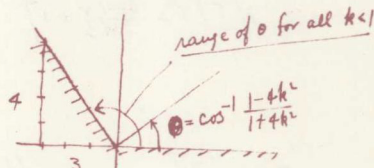 range of θ for all k<1
4
θ = cos⁻¹ (1-4k²)/(1+4k²)
3